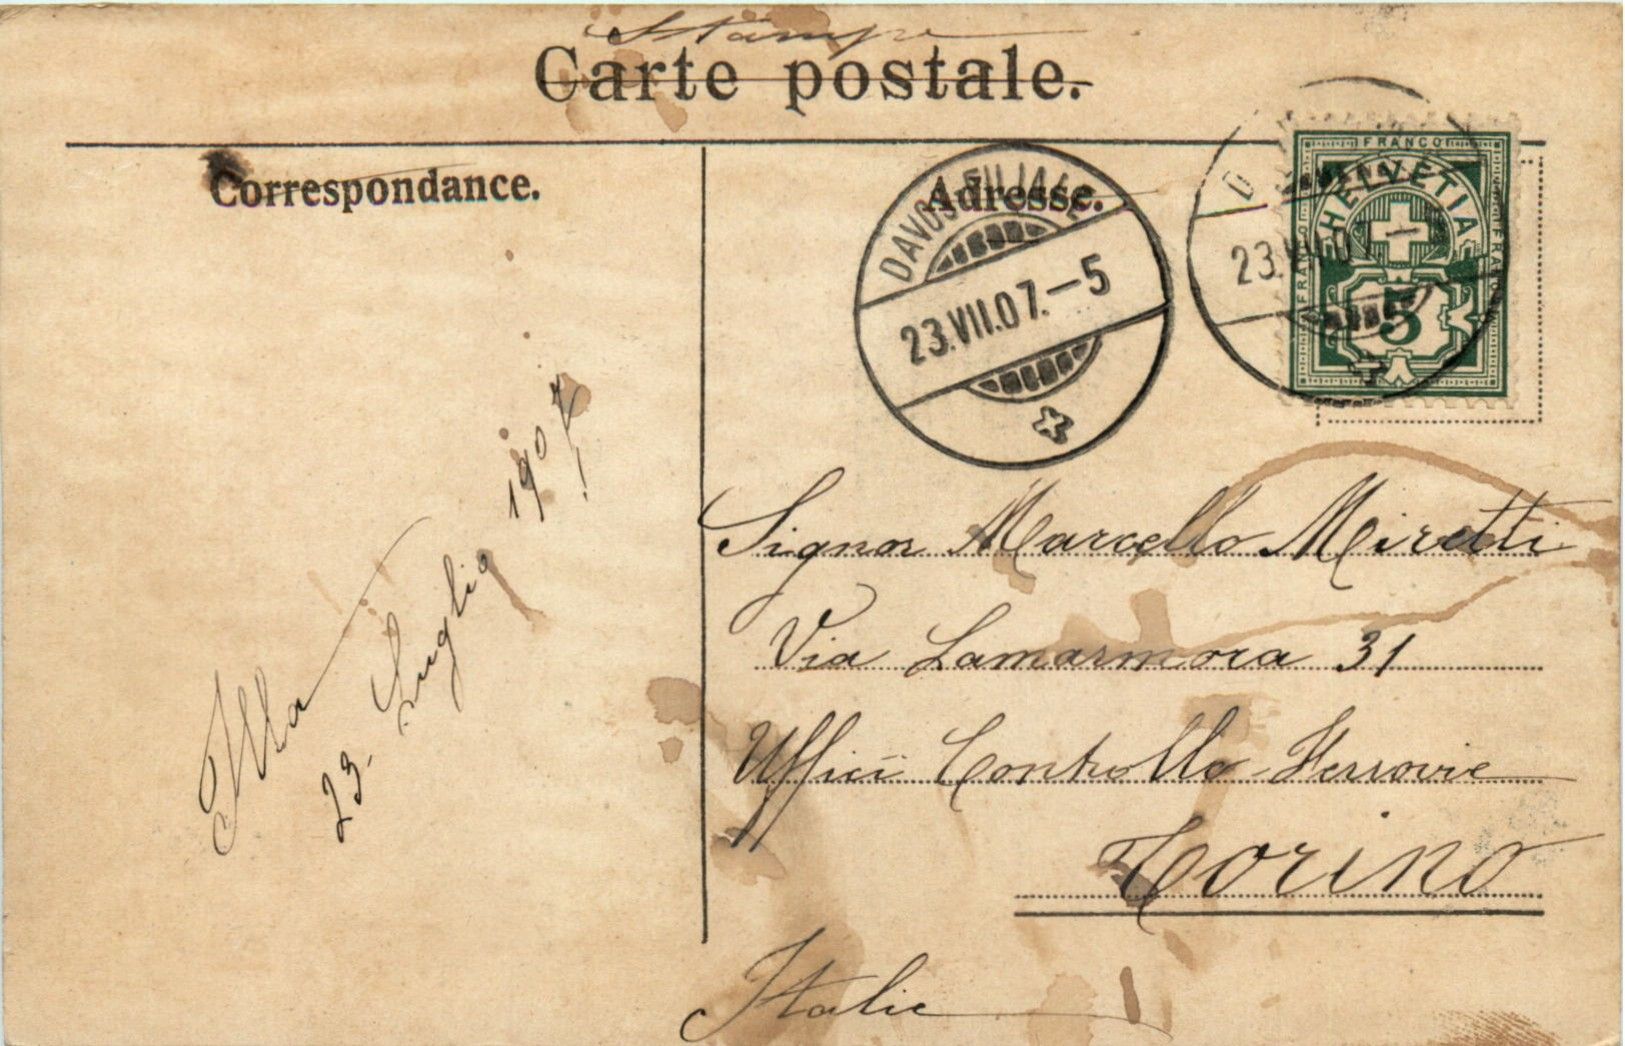 Stampe
Carte postale.
Correspondance.
Adresse.
DAVOS FILIALE
23.VII.07.-5
D
23.VII.0 -5
FRANCO
FRANCO
FRANCO
HELVETIA
5
Signor Marcello Miretti
Via Lamarmora 31
Uffici Controllo Ferrovie
Torino
Italie
23. Luglio 1907!